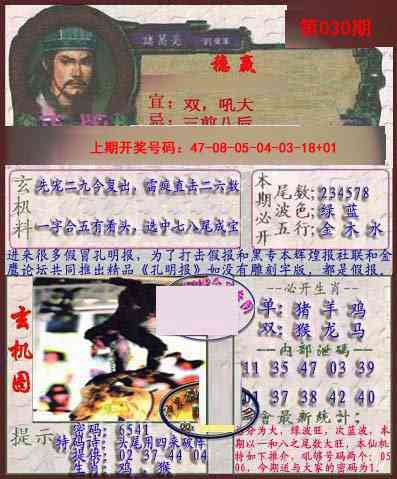 第030期
諸葛亮
稳赢
宜：双，吼大
忌：三前八后
上期开奖号码：47-08-05-04-03-18+01
玄机料
先宪二九今复出，雷霆直击二六数
一字合五有看头，选中七八尾成宝
本期必开
尾数:234578
波色:绿 蓝
五行:金 木 水
进来很多假冒孔明报，为了打击假报和黑专本辉煌报社联和金
鹰论坛共同推出精品《孔明报》如没有雕刻字版，都是假报.
玄机图
--必开生肖--
单: 猪 羊 鸡
双: 猴 龙 马
--内部泄码--
11 35 47 03 39
01 37 38 42 40
會最新統计:
分为大，绿波旺，次蓝波，本
期以一和八之尾数大旺，本仙机
特如下推介，吼够号码两个：05
06，今期运与大家的密码为1.
提示
密码: 6541
特码诗: 头尾用四来破作
提供: 02 37 44 04
生肖: 鸡 , 猴